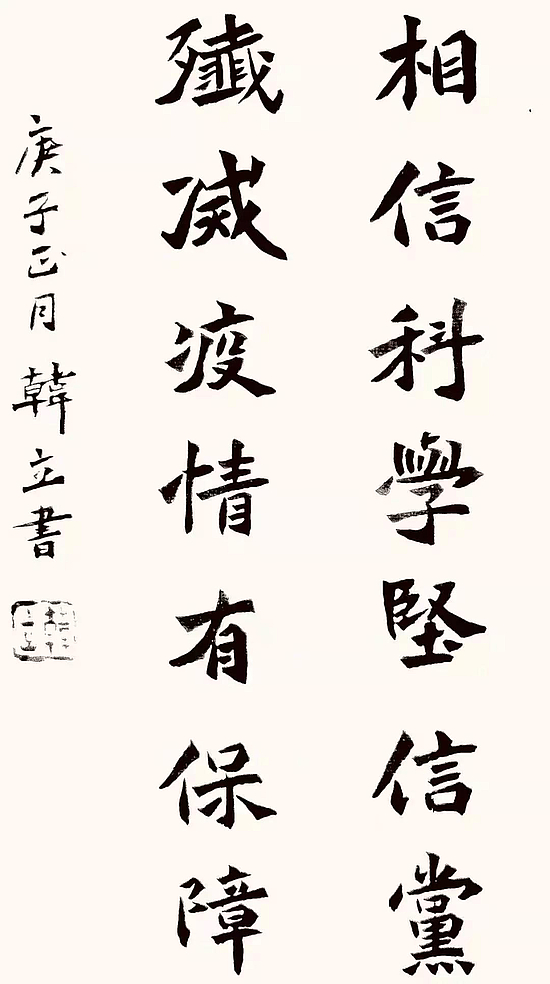 相信科學堅信黨
殲滅疫情有保障
庚子正月韓立書